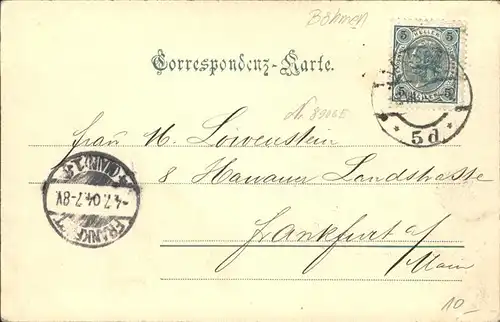 Böhmen
5 HELLER 5
5 5
Correspondenz-Karte.
* 5d *
Frau H. Löwenstein
8 Hanauer Landstrasse
Frankfurt a/
Main
FRANKFURT
-4.7.04.7-8V.
(MAIN) 1
10.-